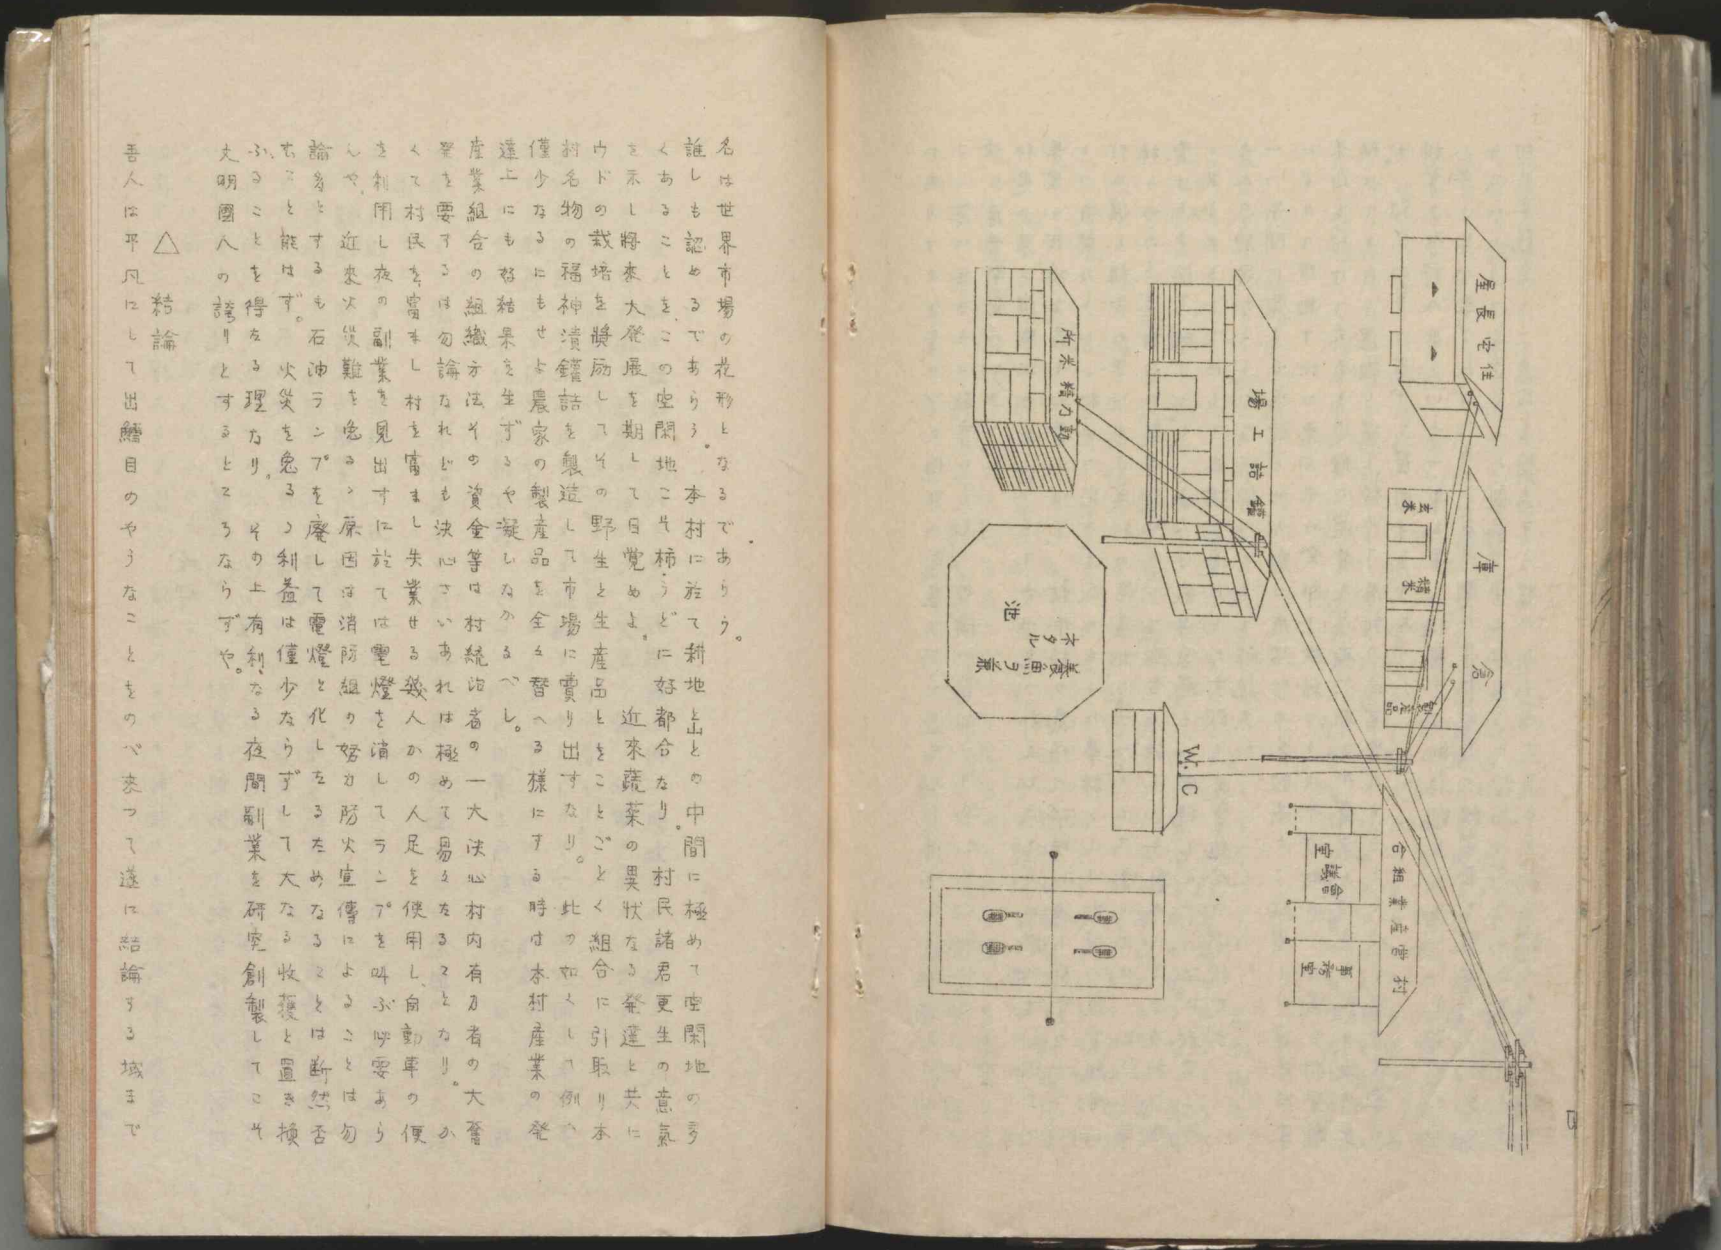 屋長宅住
倉庫
玄米
精米
製産品
罐詰工場
動力精米所
池
ネタル
養魚ヲ兼
W.C
村営産業組合
會議室
事務室
名は世界市場の花形となるであらう。
誰しも認めるであらう。本村に於て耕地と山との中間に極めて空閑地の多
くあることを、この空閑地こそ柿、うどに好都合なり。村民諸君更生の意気
を示し將來大発展を期して目覚めよ。近來蔬菜の異状なる発達と共に
ウドの栽培を奨励してその野生と生産品とをことごとく組合に引取り本
村名物の福神漬罐詰を製造して市場に賣り出すなり。此の如くして例へ
僅少なるにもせよ農家の製産品を全々替へる様にする時は本村産業の発
達上にも好結果を生ずるや凝しなかるべし。
産業組合の組織方法その資金等は村統治者の一大決心村内有力者の大奮
発を要するは勿論なれども決心さいあれは極めて易々たることなり。か
くて村民を富まし村を富まし失業せる幾人かの人足を使用し、自動車の便
を利用し夜の副業を見出すに於ては電燈を消してランプを叫ぶ必要あら
んや、近來火災難を免るゝ原因は消防組の努力防火宣傳によることは勿
論者とするも石油ランプを廃して電燈と化したるためなることは断然否
むこと能はず。火災を免るゝ利益は僅少ならずして大なる收穫と置き換
ふることを得たる理なり。その上有利なる夜間副業を研究創製してこそ
文明國人の誇りとするところならずや。
△ 結論
吾人は平凡にして出鱈目のやうなことをのべ来つて遂に結論する域まで